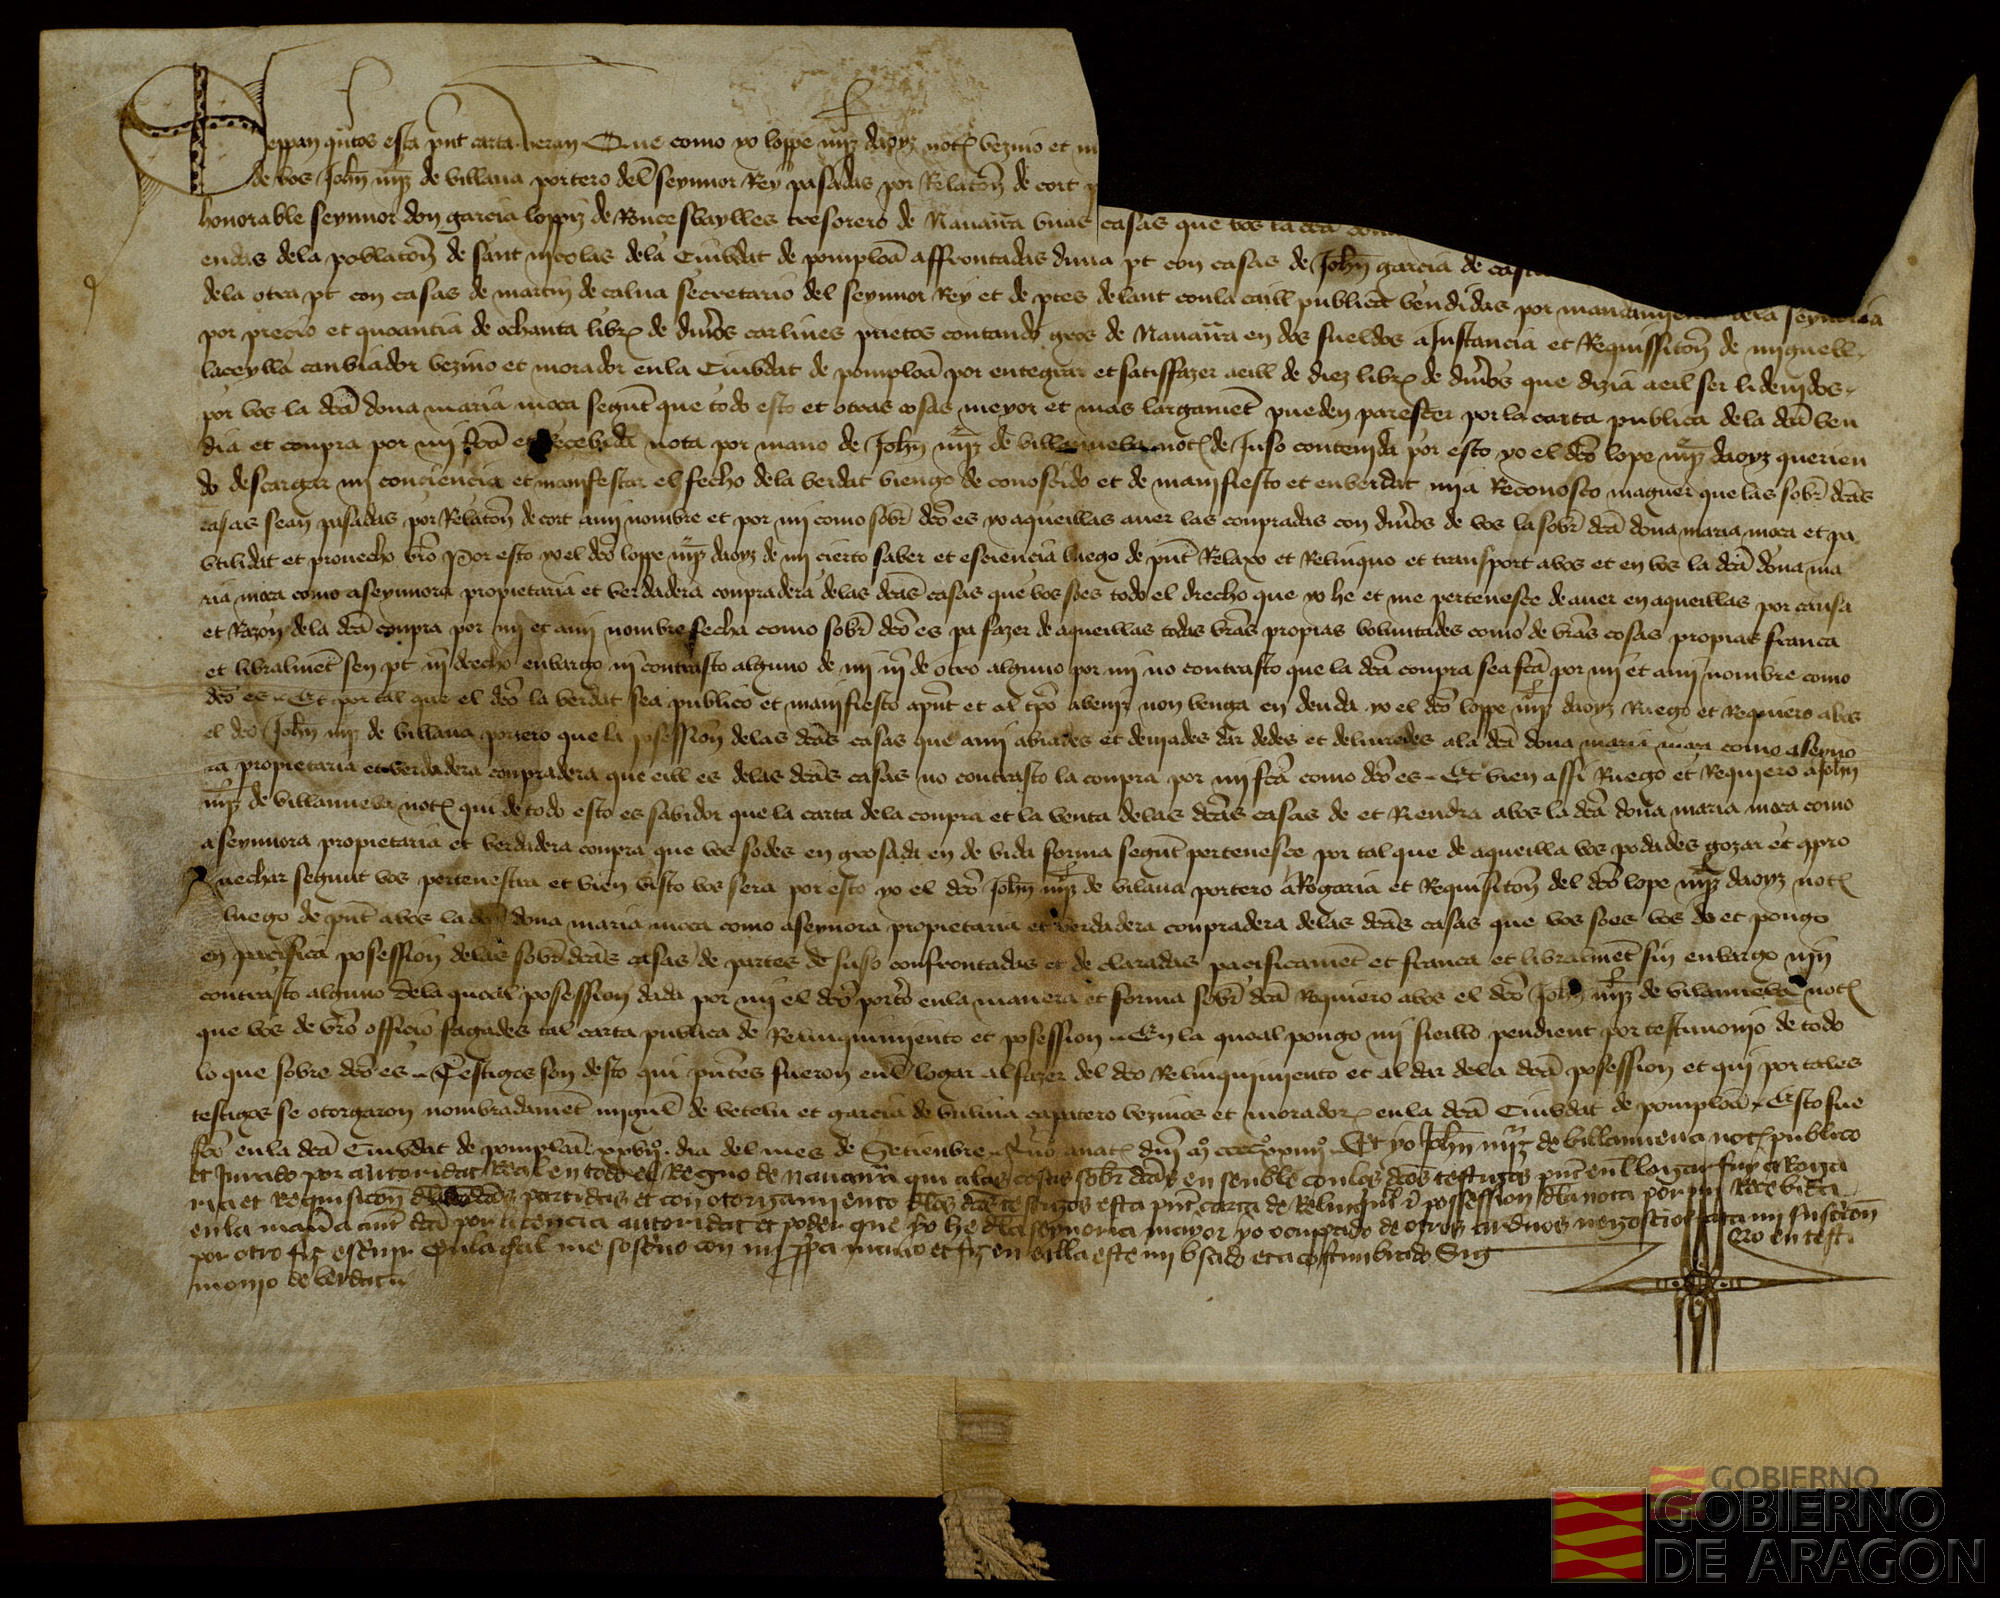 Seppan quantos esta pnt carta veran Que como yo loppe mrz daoyz not vezino et m
de vos Johan mrz de villaua portero del seynnor Rey pasadas por Relaton de cort
honorable seynnor don garcia loppiz de Roncesbaylles tresorero de Nauarra vnas casas que vos la dca
endas dela poblaton de sant nicolas dela Ciubdat de pomplona affrontadas duna pt con casas de Johan garcia de
dela otra pt con casas de martin de calua secretario del seynnor Rey et de ptes delant conla caill publica vendidas por mandamiento dela seynoria
por precio et quoantia de ochanta libr de dineros carlines prietos contando gros de Nauarra en dos sueldos a Instancia et Requissiton de miguell
laceylla canbiador vezino et morador enla Ciubdat de pomplona por entegrar et satisffazer aeill de diez libr de dineros que dizia aeil ser li deuidos
por vos la dca dona maria mora segunt que todo esto et otras cosas meyor et mas largament pueden parescer por la carta publica dela dca ven
dia et conpra por mi fca et recebida nota por mano de Johan mrz de villanueba not de Iuso contenida por esto yo el dco lope mrz daoyz querien
do descargar mi conciencia et manifestar el fecho dela verdat viengo de conoscido et de manifiesto et en verdat mia Reconosco maguer que las sobr dcas
casas sean pasadas por Relaton de cort ami nombre et por mi como sobr dco es yo aqueillas auer las conpradas con dineros de vos la sobr dca dona maria mora et pa
vtilidat et prouecho vro Por esto yo el dco loppe mrz daoyz de mi cierto saber et esciencia luego de pnt Relaxo et Relinquo et transport avos et en vos la dca dona ma
ria mora como aseynnora propietaria et verdadera conpradera delas dcas casas que vos soes todo el drecho que yo he et me pertenesce de auer en aqueillas por causa
et Razon dela dca conpra por mi et ami nombre fecha como sobr dco es pa fazer de aqueillas todas vras propias voluntades como de vras cosas propias franca
et libralment sen pt ni drecho enbargo ni contrasto alguno de mi ni de otro alguno por mi no contrasto que la dca conpra sea fca por mi et ami nombre como
dco es Et por tal que el dco la verdat sea publico et manifiesto apnt et al tpo avenir non venga en deuda yo el dco loppe mrz daoyz Ruego et Requiero abos
el dco Johan mrz de villaua portero que la posession delas dcas casas que ami abiades et deuiades dar dedes et deliuredes ala dca dona maria mora como aseyno
ra propietaria et verdadera conpradera que eill es delas dcas casas no contrasto la conpra por mi fca como dco es Et bien assi Ruego et Requiero a Johan
mrz de villanueba not qui de todo esto es sabidor que la carta dela conpra et la venta delas dcas casas de et Rendra abos la dca dona maria mora como
aseynnora propietaria et verdadera conpra que vos sodes en grosada en de vida forma segunt pertenesce por tal que de aqueilla vos podades gozar et apro
uechar segunt vos pertenestra et bien visto vos sera por esto yo el dco Johan mrz de vilaua portero a Rogaria et Requisiton del dco lope mrz daoyz not
luego de pnt abos la dca dona maria mora como aseynora propietaria et verdadera conpradera delas dcas casas que vos soes vos do et pongo
en pacifica posession delas sobr dcas casas de partes de suso confrontadas et de claradas pacificament et franca et libralment sin enbargo nin
contrasto alguno dela quoal posession dada por mi el dco porto enla manera et forma sobr dca Requiero abos el dco Johan mrz de vilanueba not
que vos de vro officio fagades tal carta publica de Relinquimiento et posession En la quoal pongo mi sieillo pendient por testimonio de todo
lo que sobre dco es Testigos son desto qui pntes fueron enl logar al fazer del dco Relinquimiento et al dar dela dca posession et qui por tales
testigos se otorgaron nombradament miguel de betelu et garcia de capatero vezinos et morador enla dca Ciubdat de pomplona Esto fue
fco enla dca Ciubdat de pomplona dia del mes de Setienbre Et yo Johan mrz de billanueua not publico
et Jurado por autoridat Real en todo el Regno de nauarra qui alas cosas sobr dcas en senble conlos dcos testigos pnt enl logar fuy et Roga
ria et Requisicon dlas dcas partidas et con otorgamiento dlos dcos testigos esta pnt carta de Relinqui et possession dla nota por mi Recebida
enla manera ant dca por licencia autoridat et poder que yo he dla seynoria mayor yo occuppado de otros arduos negoscios mi suscricon
por otro fiz escriuir Enla qual me soscriuo con mi ppia mano et fiz en eilla este mi vsado et acostumbrado Sig no en testi
monio de verdat

GOBIERNO
GOBIERNO
DE ARAGON